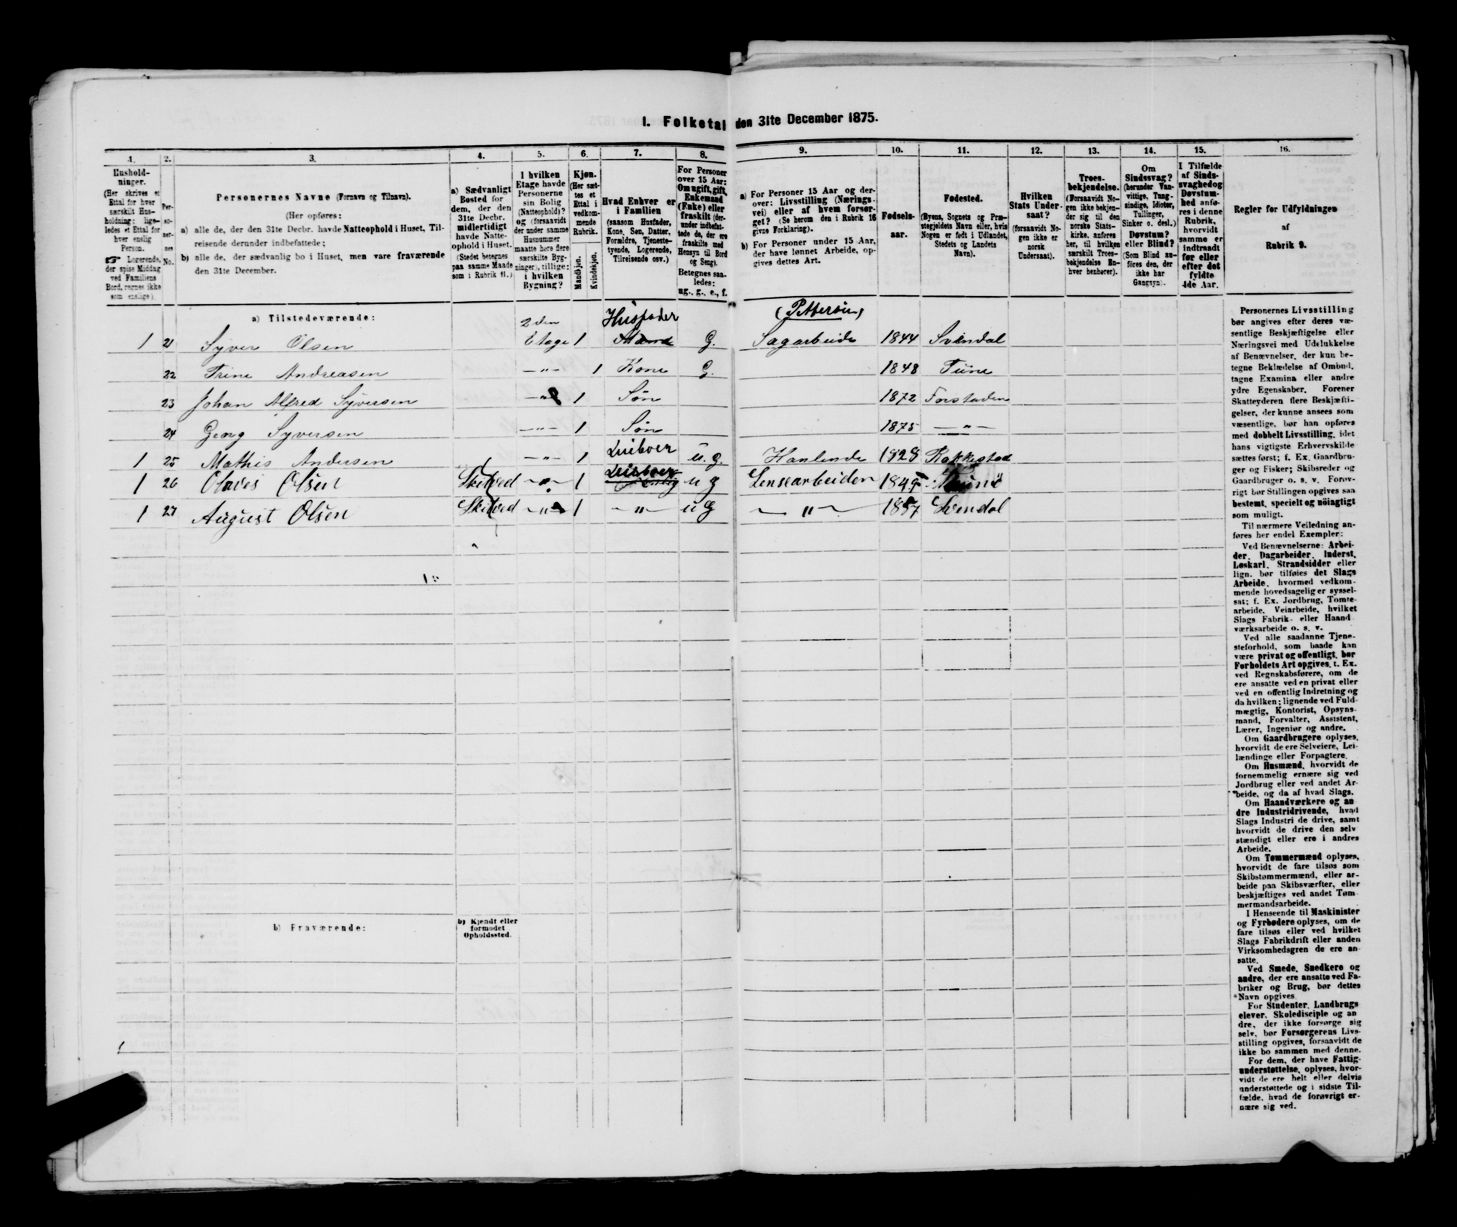 I. Folketal den 31te December 1875.
1. 2. 3. 4. 5. 6. 7. 8. 9. 10. 11. 12. 13. 14. 15. 16.
Hushold-
ninger.
(Her skrives et
Ettal for hver
særskilt Hus-
holdning; lige-
ledes et Ettal for
hver enslig
Person.
☞ Logerende,
der spise Middag
ved Familiens
Bord, regnes ikke
som enslige).
Per-
so-
ner-
nes
No.
Personernes Navne (Fornavn og Tilnavn).
(Her opføres:
a) alle de, der den 31te Decbr. havde Natteophold i Huset, Til-
reisende derunder indbefattede;
b) alle de, der sædvanlig bo i Huset, men vare fraværende
den 31te December.
a) Sædvanligt
Bosted for
dem, der den
31te Decbr.
midlertidigt
havde Natte-
ophold i Huset.
(Stedet betegnes
paa samme Maade
som i Rubrik 11.)
I hvilken
Etage havde
Personerne
sin Bolig
(Natteophold)?
og (forsaavidt
der under samme
Husnummer
maatte høre flere
særskilte Byg-
ninger), tillige:
i hvilken
Bygning?
Kjøn.
(Her sæt-
tes et
Ettal i
vedkom-
mende
Rubrik.
Mandkjøn.
Kvindekjøn.
Hvad Enhver er
i Familien
(saasom Husfader,
Kone, Søn, Datter,
Forældre, Tjeneste-
tyende, Logerende,
Tilreisende osv.)
For Personer
over 15 Aar:
Om ugift, gift,
Enkemand
(Enke) eller
fraskilt (der-
under indbefat-
tede de, der ere
fraskilte med
Hensyn til Bord
og Seng).
Betegnes saa-
ledes:
ug., g., e., f.
a) For Personer 15 Aar og der-
over: Livsstilling (Nærings-
vei) eller af hvem forsør-
get? (Se herom den i Rubrik 16
givne Forklaring).
b) For Personer under 15 Aar,
der have lønnet Arbeide, op-
gives dettes Art.
Fødsels-
aar.
Fødested.
(Byens, Sognets og Præ-
stegjeldets Navn eller, hvis
Nogen er født i Udlandet,
Stedets og Landets
Navn).
Hvilken
Stats Under-
saat?
(forsaavidt No-
gen ikke er
norsk
Undersaat).
Troes-
bekjendelse.
(Forsaavidt No-
gen ikke bekjen-
der sig til den
norske Stats-
kirke, anføres
her, til hvilken
særskilt Troes-
bekjendelse En-
hver henhører).
Om
Sindssvag?
(herunder Van-
vittige, Tung-
sindige, Idioter,
Tullinger,
Sinker o. desl.)
Døvstum?
eller Blind?
(Som Blind an-
føres den, der
ikke har
Gangsyn).
I Tilfælde
af Sinds-
svaghed og
Døvstum-
hed anfø-
res i denne
Rubrik,
hvorvidt
samme er
indtraadt
før eller
efter det
fyldte
4de Aar.
Regler for Udfyldningen
af
Rubrik 9.
a) Tilstedeværende:
1 21 Syver Olsen 2 den Etage 1 Husfader Mand G. (Pettersen) Sagarbeide 1844 Svindal
22 Trine Andreasen —"— 1 Kone G. 1848 Tune
23 Johan Alfred Syversen —"— 1 Søn 1872 Forstaden
24 Georg Syversen —"— 1 Søn 1875 —"—
1 25 Mathis Andersen —"— 1 Leiboer u. g. Hanlende 1828 Rakkestad
1 26 Olaves Olsen Skibtved —"— 1 Leieboer Enslig u g Lensearbeiden 1849 Tune
1 27 August Olsen Skibtved —"— 1 —"— u G —"— 1857 Svendal
b) Fraværende:
b) Kjendt eller
formodet
Opholdssted.
Personernes Livsstilling
bør angives efter deres væ-
sentlige Beskjæftigelse eller
Næringsvei med Udelukkelse
af Benævnelser, der kun be-
tegne Beklædelse af Ombud,
tagne Examina eller andre
ydre Egenskaber. Forener
Skatteyderen flere Beskjæfti-
gelser, der kunne ansees som
væsentlige, bør han opføres
med dobbelt Livsstilling, idet
hans vigtigste Erhvervskilde
sættes først; f. Ex. Gaardbru-
ger og Fisker; Skibsreder og
Gaardbruger o. s. v. Forøv-
rigt bør Stillingen opgives saa
bestemt, specielt og nøiagtigt
som muligt.
Til nærmere Veiledning an-
føres her endel Exempler:
Ved Benævnelserne: Arbei-
der, Dagarbeider, Inderst,
Løskarl, Strandsidder eller
lign. bør tilføies det Slags
Arbeide, hvormed vedkom-
mende hovedsagelig er syssel-
sat; f. Ex. Jordbrug, Tomte-
arbeide, Veiarbeide, hvilket
Slags Fabrik- eller Haand-
værksarbeide o. s. v.
Ved alle saadanne Tjene-
steforhold, som baade kan
være privat og offentligt, bør
Forholdets Art opgives, t. Ex.
ved Regnskabsførere, om de
ere ansatte ved en privat eller
ved en offentlig Indretning og
da hvilken; lignende ved Fuld-
mægtig, Kontorist, Opsyns-
mand, Forvalter, Assistent,
Lærer, Ingeniør og andre.
Om Gaardbrugere oplyses,
hvorvidt de ere Selveiere, Lei-
lændinge eller Forpagtere.
Om Husmænd, hvorvidt de
fornemmelig ernære sig ved
Jordbrug eller ved andet Ar-
beide, og da af hvad Slags.
Om Haandværkere og an-
dre Industridrivende, hvad
Slags Industri de drive, samt
hvorvidt de drive den selv-
stændigt eller ere i andres
Arbeide.
Om Tømmermænd oplyses,
hvorvidt de fare tilsøs som
Skibstømmermænd, eller ar-
beide paa Skibsværfter, eller
beskjæftiges ved andet Tøm-
mermandsarbeide.
I Henseende til Maskinister
og Fyrbødere oplyses, om de
fare tilsøs eller ved hvilket
Slags Fabrikdrift eller anden
Virksomhedsgren de ere an-
satte.
Ved Smede, Snedkere og
andre, der ere ansatte ved Fa-
briker og Brug, bør dettes
Navn opgives
For Studenter, Landbrugs-
elever, Skoledisciple og an-
dre, der ikke forsørge sig
selv, bør Forsørgerens Livs-
stilling opgives, forsaavidt de
ikke bo sammen med denne.
For dem, der have Fattig-
understøttelse, oplyses, hvor-
vidt de ere helt eller delvis
understøttede og i sidste Til-
fælde, hvad de forøvrigt er-
nære sig ved.